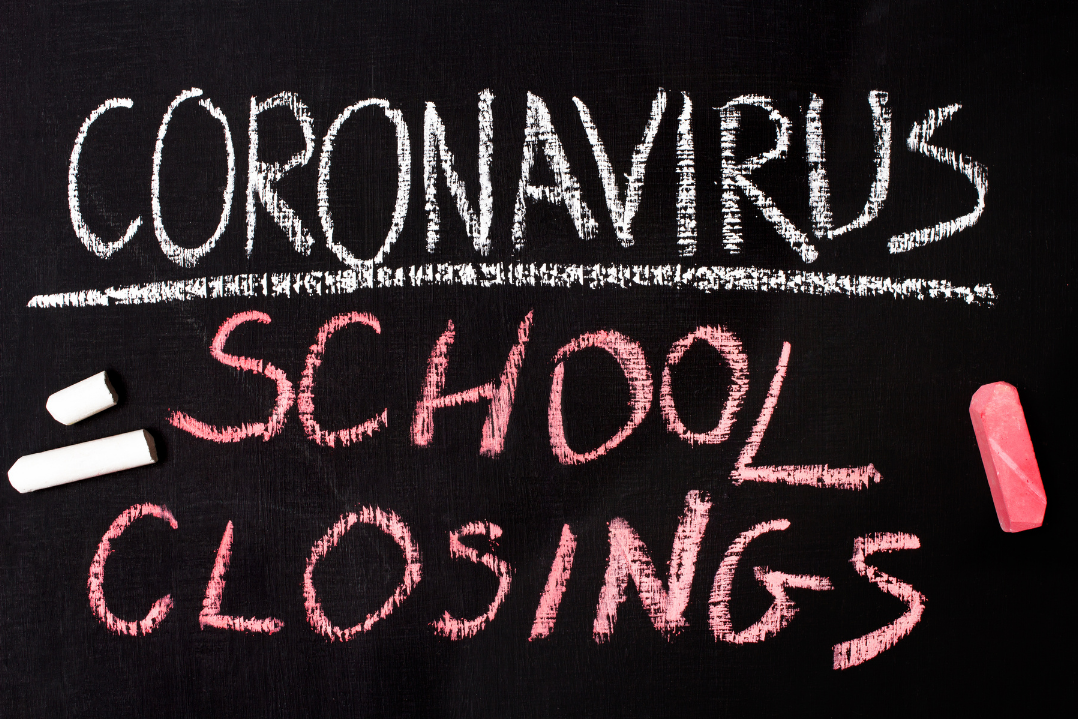 CORONAVIRUS
SCHOOL
CLOSINGS